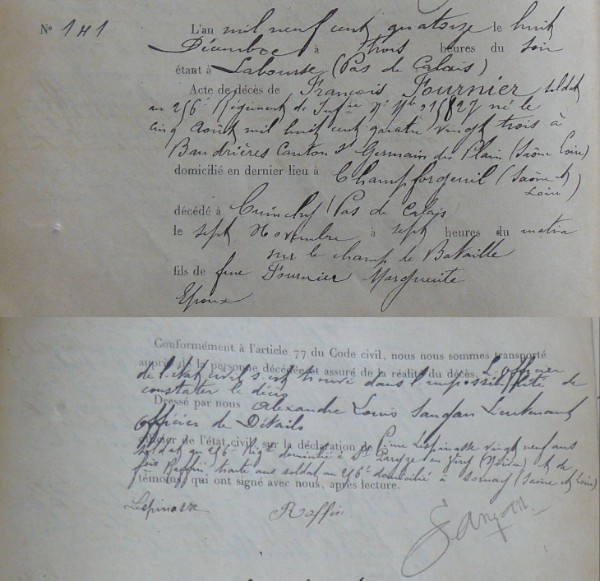 N° 141 L'an mil neuf cent quatorze le huit
Décembre à trois heures du soir
étant à Labourse (Pas de Calais)
Acte de décès de François Fournier soldat
au 256e Régiment de Infrie né le
cinq Aout mil huit cent quatre vingt trois à
Baudrières Canton St Germain du Plain (Saône Loire)
domicilié en dernier lieu à Champforgeuil (Saône et
Loire)
décédé à Cuinchy (Pas de Calais
le sept Novembre à sept heures du matin
sur le champ de Bataille
fils de feue Fournier Marguerite
Epoux
Conformément à l'article 77 du Code civil, nous nous sommes transporté
auprès de la personne décédée et assuré de la réalité du décès. L'officier
de l'état civil s'est trouvé dans l'impossibilité de
constater le décès
Dressé par nous Alexandre Louis Lieutenant
officier de Détails
officier de l'état civil, sur la déclaration de Lespinasse vingt neuf ans
soldat au 256e domicilié à St en (Nièvre) et de
Raffin, trente ans soldat au 256e domicilié à Sornay (Saône et Loire)
témoins, qui ont signé avec nous, après lecture.
Lespinasse Raffin